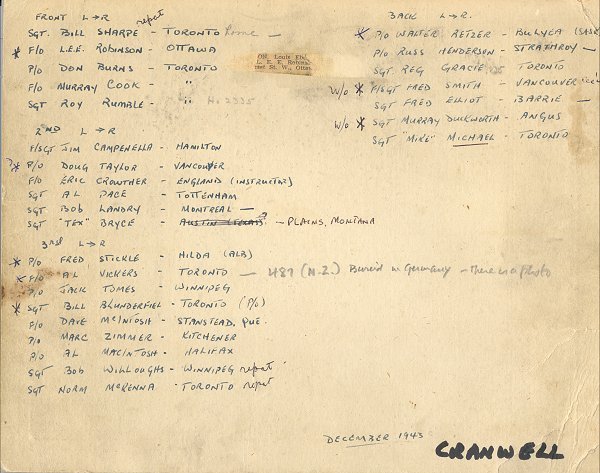 FRONT L→R
repat
SGT. BILL SHARPE - TORONTO home -
* F/O L.E.E. ROBINSON - OTTAWA
P/O DON BURNS - TORONTO
P/O MURRAY COOK - "
SGT ROY RUMBLE - "
2ND L→R
F/SGT JIM CAMPENELLA - HAMILTON
?* P/O DOUG TAYLOR - VANCOUVER
F/O ERIC CROWTHER - ENGLAND (INSTRUCTOR)
SGT AL PACE - TOTTENHAM
SGT BOB LANDRY - MONTREAL -
SGT "TEX" BRYCE - AUSTIN (TEXAS) - PLAINS, MONTANA
3RD L→R
* P/O FRED STICKLE - HILDA (ALB)
* F/O AL VICKERS - TORONTO - 487 (N.Z.) Buried in Germany - there is a photo
P/O JACK TOMES - WINNIPEG
* SGT BILL BLUNDERFIEL - TORONTO (P/O)
F/O DAVE McINTOSH - STANSTEAD, QUE.
P/O MARC ZIMMER - KITCHENER
P/O AL MACINTOSH - HALIFAX
SGT BOB WILLOUGHS - WINNIPEG repat
SGT NORM McKENNA - TORONTO repat
BACK L→R.
* P/O WALTER RETZER - BULYEA (SASK
P/O RUSS HENDERSON - STRATHROY -
SGT REG GRACIE - TORONTO
W/O * F/SGT FRED SMITH - VANCOUVER
SGT FRED ELLIOT - BARRIE -
W/O * SGT MURRAY DUCKWORTH - ANGUS
SGT "MIKE" MICHAEL - TORONTO
L. E. E.
St. W.,
DECEMBER 1943
CRANWELL